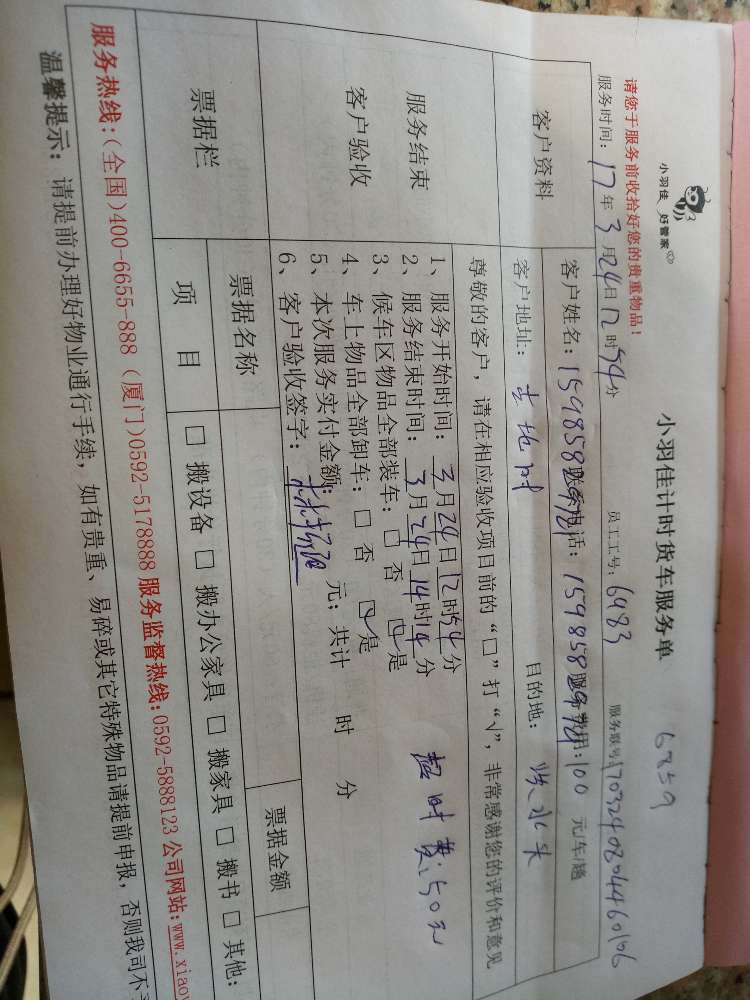 小羽佳 好管家
小羽佳计时货车服务单
6859
请您于服务前收拾好您的贵重物品!
服务时间: 17年3月24日12时54分 员工工号: 6983 服务联号
客户资料
客户姓名: 联系电话: 服务费用:100 元/车/趟
客户地址: 目的地:
服务结束
客户验收
尊敬的客户,请在相应验收项目前的“□”打“√”,非常感谢您的评价和意见
1、服务开始时间: 3月24日12时54分
2、服务结束时间: 3月24日14时14分
3、候车区物品全部装车: □ 否 ☑是
4、车上物品全部卸车: □ 否 ☑是
超时费:50元
5、本次服务实付金额: 元; 共计 时 分
6、客户验收签字:
票据栏
票据名称 票据金额
项 目 □ 搬设备 □ 搬办公家具 □ 搬家具 □ 搬书 □ 其他:
服务热线:(全国)400-6655-888 (厦门)0592-5178888 服务监督热线:0592-5888123 公司网站:www.xiaoy
温馨提示: 请提前办理好物业通行手续,如有贵重、易碎或其它特殊物品请提前申报,否则我司不